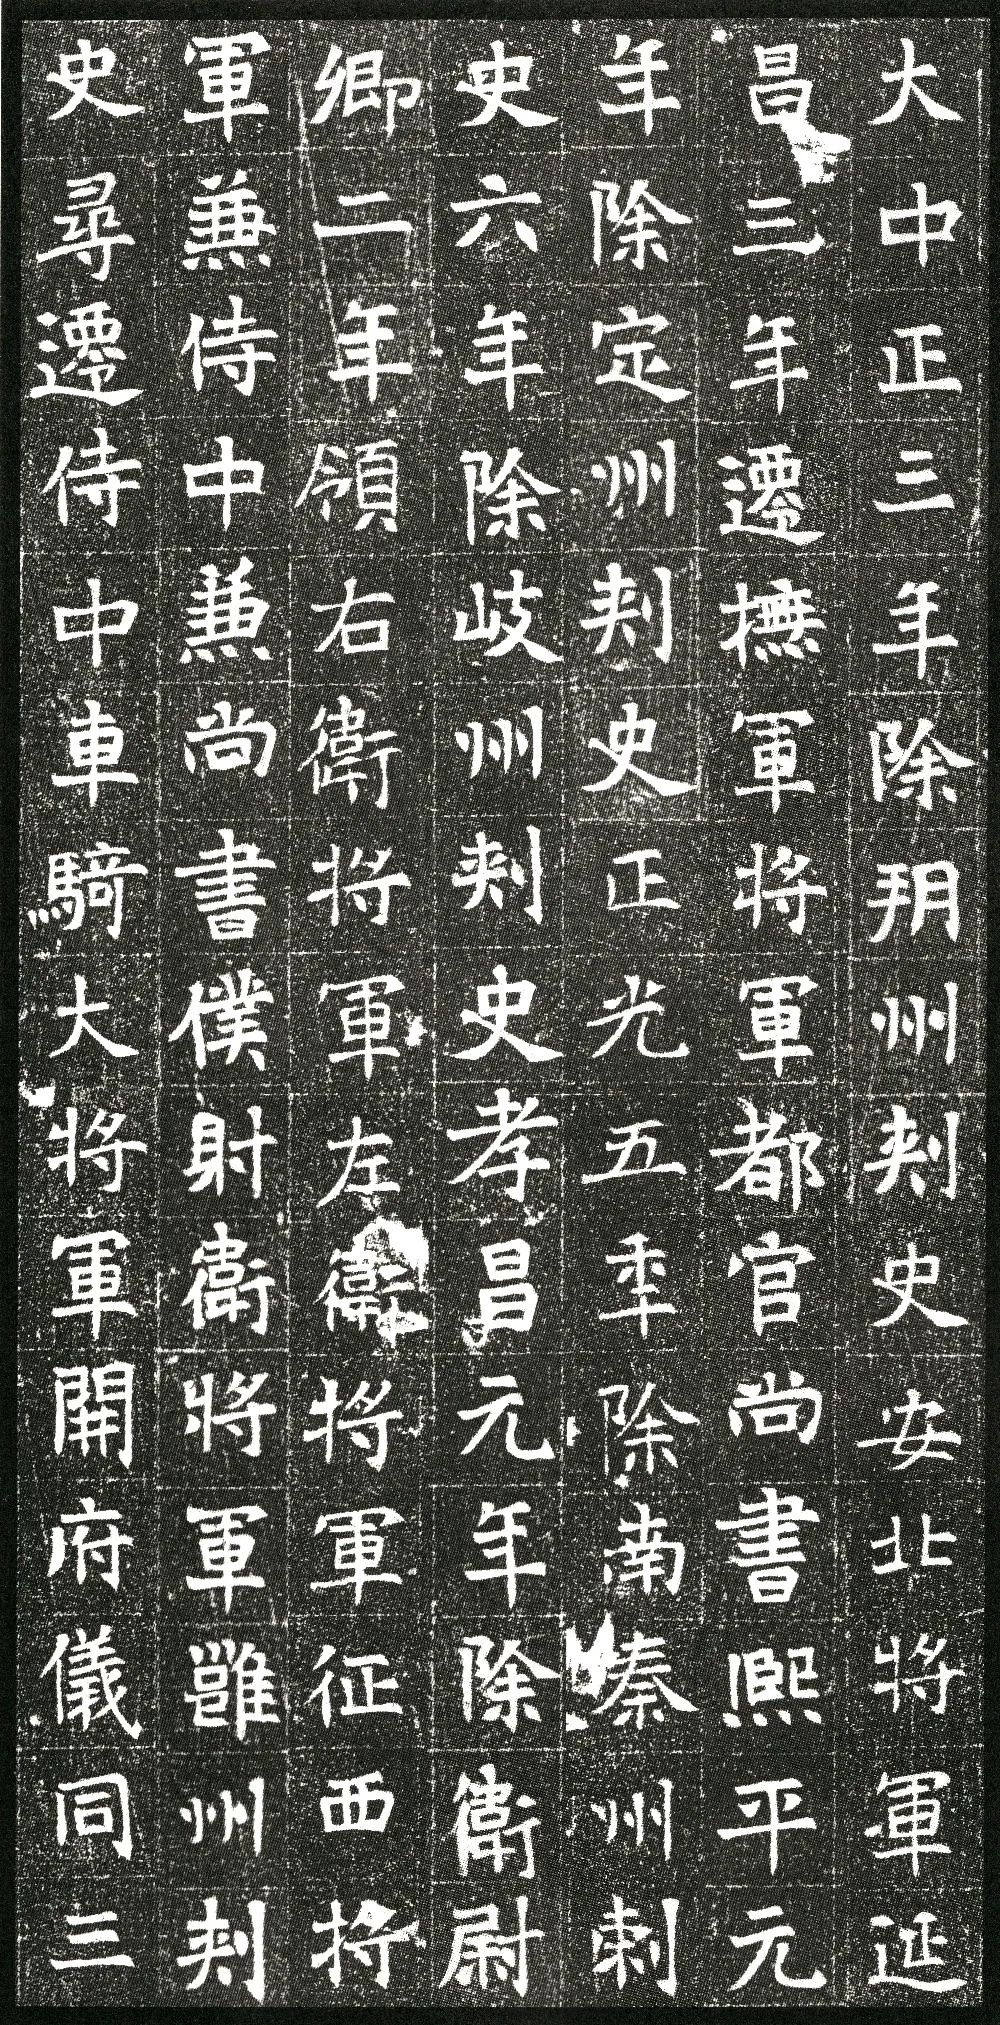 大中正三年除朔州刾史安北將軍延
昌三年遷撫軍將軍都官尚書熙平元
年除定州刾史正光五秊除南秦州刺
史六年除岐州刾史孝昌元年除衛尉
卿二年領右衛將軍左衛將軍征西將
軍兼侍中兼尚書僕射衛將軍雝州刾
史尋遷侍中車騎大將軍開府儀同三